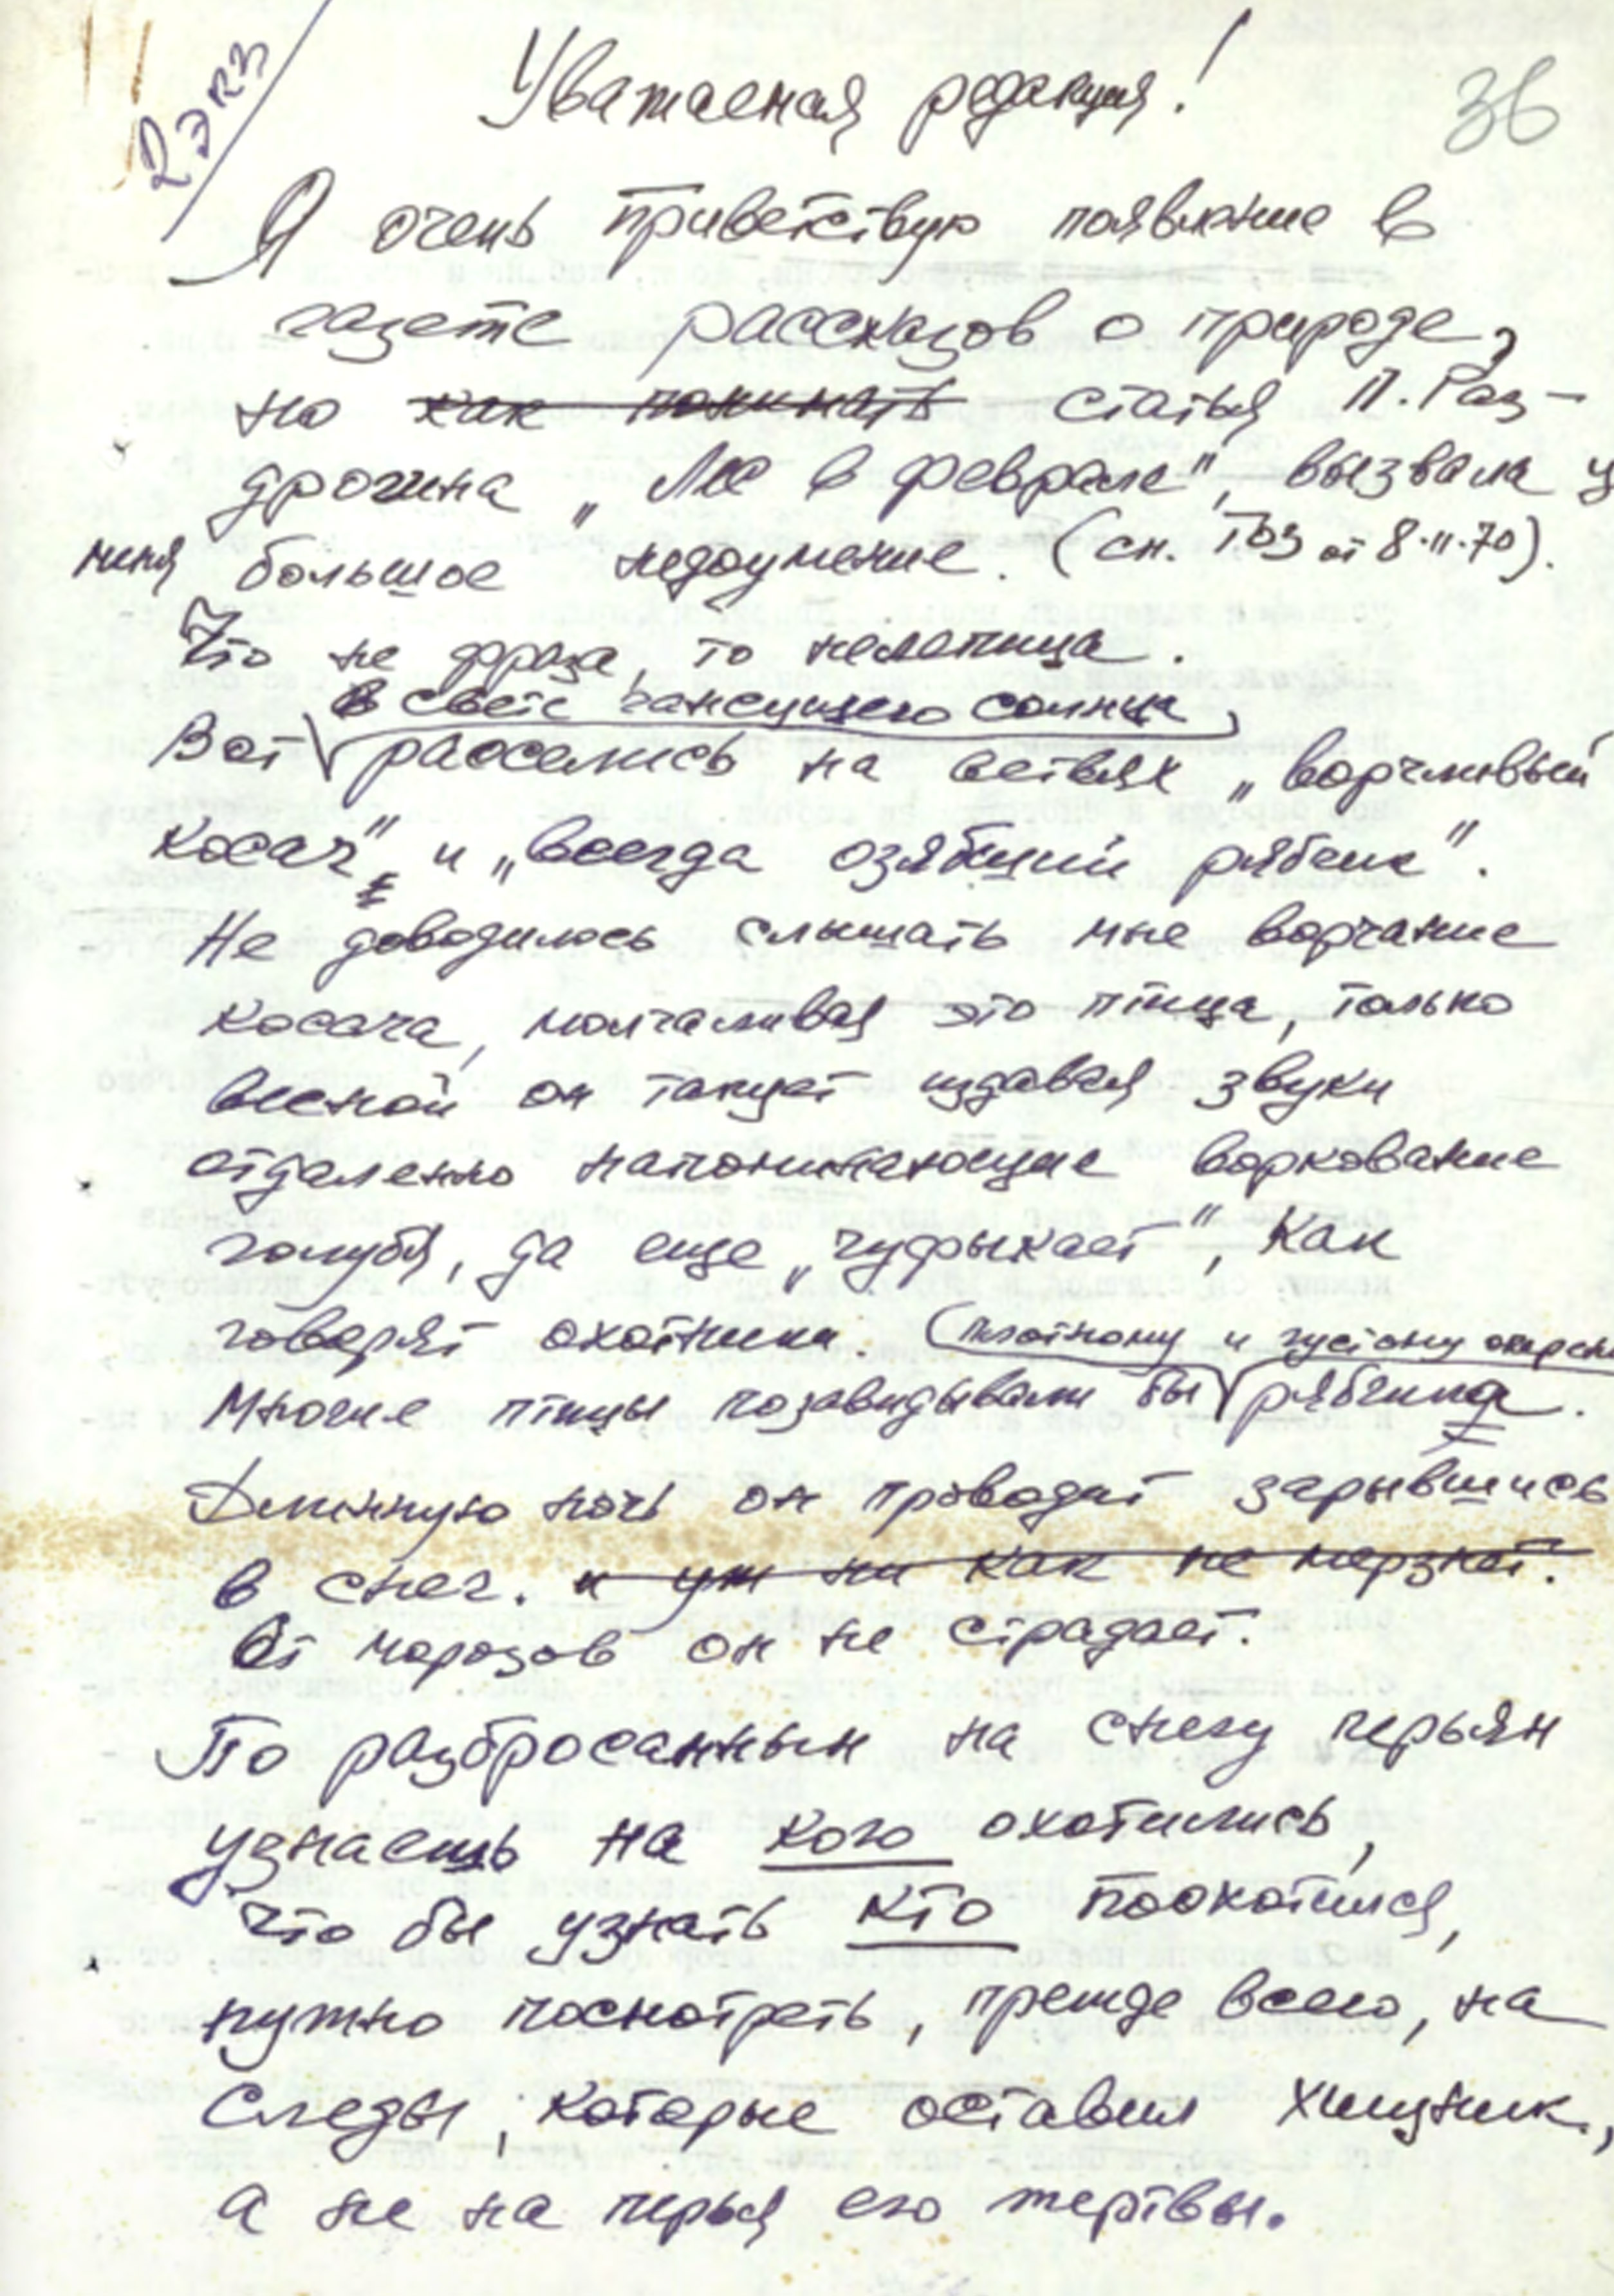 2 экз
36
Уважаемая редакция!
Я очень приветствую появление в
газете рассказов о природе,
но как понимать статья П. Раз-
дрогина „Лес в феврале", вызвала у
меня большое недоумение. (см. ТВЗ от 8.II.70).
Что не фраза, то нелепица.
в свете гаснущего солнца,
Вот расселись на ветвях „ворчливый
косач" и „всегда озябший рябчик".
Не доводилось слышать мне ворчание
косача, молчаливая это птица, только
весной он токует издавая звуки
отдаленно напоминающие воркование
голубя, да еще „чуфыкает", как
говорят охотники. (плотному и густому
Многие птицы позавидывали бы рябчика.
Длинную ночь он проводит зарывшись
в снег. и уж ни как не мерзнет.
От морозов он не страдает.
По разбросанным на снегу перьям
узнаешь на кого охотились,
что бы узнать кто поохотился,
нужно посмотреть, прежде всего, на
следы, которые оставил хищник,
а не на перья его жертвы.